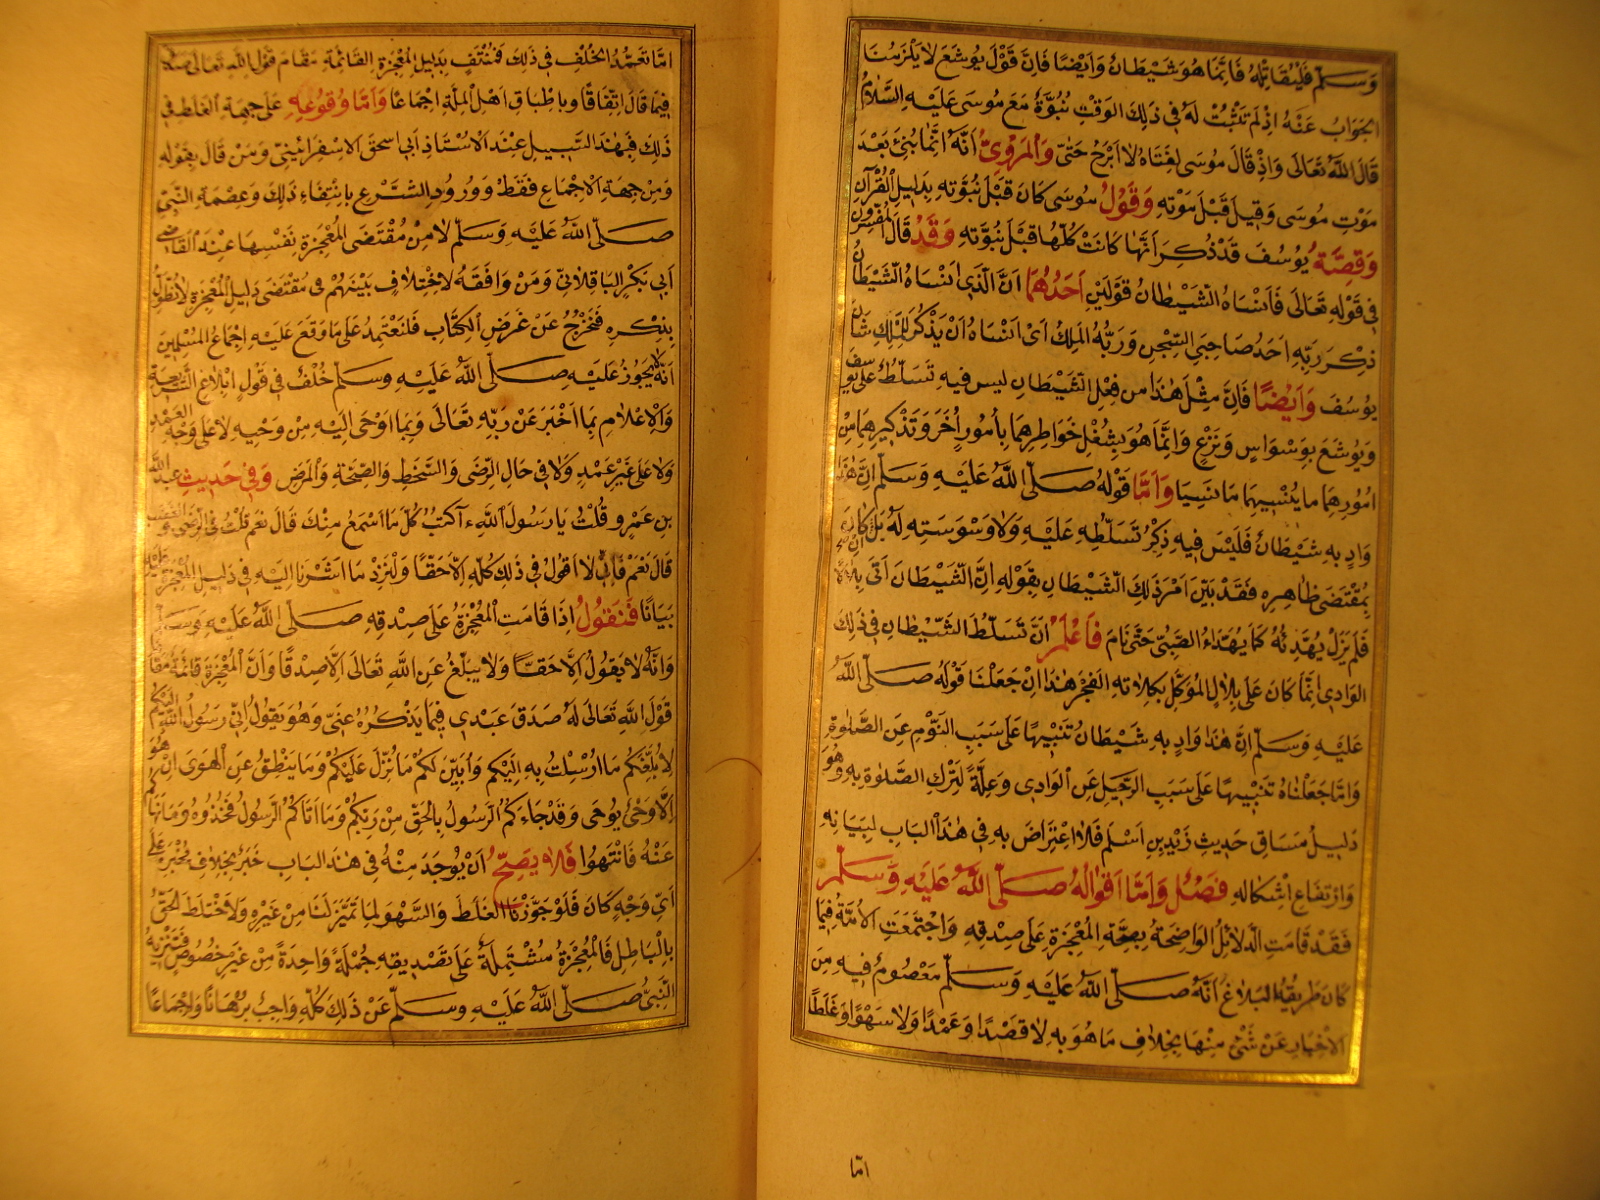 وَسَلَّمَ فَلْيُقَاتِلْهُ فَاِنَّمَا هُوَ شَيْطَانٌ وَاَيْضًا فَاِنَّ قَوْلَ يُوشَعَ لَا يَلْزَمُنَا
الجَوَابُ عَنْهُ اِذْ لَمْ تَثْبُتْ لَهُ فِي ذلِكَ الوَقْتِ نُبُوَّةٌ مَعَ مُوسَى عَلَيْهِ السَّلَامُ
قَالَ اللّٰهُ تَعَالَى وَاِذْ قَالَ مُوسَى لِفَتَاهُ لَا اَبْرَحُ حَتّى وَالمَرْوِيُّ اَنَّهُ اِنَّمَا نُبِّئَ بَعْدَ
مَوْتِ مُوسَى وَقِيلَ قَبْلَ مَوْتِهِ وَقَوْلُ مُوسَى كَانَ قَبْلَ نُبُوَّتِهِ بِدَلِيلِ القُرْآنِ
وَقِصَّةُ يُوسُفَ قَدْ ذُكِرَ اَنَّهَا كَانَتْ كُلُّهَا قَبْلَ نُبُوَّتِهِ وَقَدْ قَالَ المُفَسِّرُونَ
فِي قَوْلِهِ تَعَالَى فَاَنْسَاهُ الشَّيْطَانُ قَوْلَيْنِ اَحَدُهُمَا اَنَّ الَّذِي اَنْسَاهُ الشَّيْطَانُ
ذِكْرَ رَبِّهِ اَحَدُ صَاحِبَيِ السِّجْنِ وَرَبُّهُ المَلِكُ اَيْ اَنْسَاهُ اَنْ يَذْكُرَ لِلْمَلِكِ شَانَ
يُوسُفَ وَاَيْضًا فَاِنَّ مِثْلَ هٰذَا مِن فِعْلِ الشَّيْطَانِ لَيْسَ فِيهِ تَسَلُّطٌ عَلَى يُوسُفَ
وَيُوشَعَ بِوَسْوَاسٍ وَنَزْغٍ وَاِنَّمَا هُوَ بِشُغْلِ خَوَاطِرِهِمَا بِاُمُورٍ اُخَرَ وَتَذْكِيرِهِمَا مِنْ
اُمُورِهِمَا مَا يُنْسِيهِمَا مَا نَسِيَا وَاَمَّا قَوْلُهُ صَلَّى اللّٰهُ عَلَيْهِ وَسَلَّمَ اِنَّ هٰذَا
وَادٍ بِهِ شَيْطَانٌ فَلَيْسَ فِيهِ ذِكْرُ تَسَلُّطِهِ عَلَيْهِ وَلَا وَسْوَسَتِهِ لَهُ بَلْ اِنْ كَانَ
بِمُقْتَضَى ظَاهِرِهِ فَقَدْ بَيَّنَ اَمْرَ ذٰلِكَ الشَّيْطَانِ بِقَوْلِهِ اِنَّ الشَّيْطَانَ اَتَى بِلَالًا
فَلَمْ يَزَلْ يُهَدِّئُهُ كَمَا يُهَدَّاءُ الصَّبِيُّ حَتّى نَامَ فَاعْلَمْ اَنَّ تَسَلُّطَ الشَّيْطَانِ فِي ذٰلِكَ
الوَادِي اِنَّمَا كَانَ عَلَى بِلَالٍ المُوَكَّلِ بِكِلَاءَتِهِ الفَجْرَ هٰذَا اِنْ جَعَلْنَا قَوْلَهُ صَلَّى اللّٰهُ
عَلَيْهِ وَسَلَّمَ اِنَّ هٰذَا وَادٍ بِهِ شَيْطَانٌ تَنْبِيهًا عَلَى سَبَبِ النَّوْمِ عَنِ الصَّلٰوةِ
وَاَمَّا اِنْ جَعَلْنَاهُ تَنْبِيهًا عَلَى سَبَبِ الرَّحِيلِ عَنِ الوَادِي وَعِلَّةً لِتَرْكِ الصَّلٰوةِ بِهِ وَهُوَ
دَلِيلُ مَسَاقِ حَدِيثِ زَيْدِ بْنِ اَسْلَمَ فَلَا اعْتِرَاضَ بِهِ فِي هٰذَا البَابِ لِبَيَانِهِ
وَارْتِفَاعِ اِشْكَالِهِ فَصْلٌ وَاَمَّا اَقْوَالُهُ صَلَّى اللّٰهُ عَلَيْهِ وَسَلَّمَ
فَقَدْ قَامَتِ الدَّلَائِلُ الوَاضِحَةُ بِصِحَّةِ المُعْجِزَةِ عَلَى صِدْقِهِ وَاجْتَمَعَتِ الاُمَّةُ فِيمَا
كَانَ طَرِيقُهُ البَلَاغَ اَنَّهُ صَلَّى اللّٰهُ عَلَيْهِ وَسَلَّمَ مَعْصُومٌ فِيهِ مِنَ
الاِخْبَارِ عَنْ شَيْءٍ مِنْهَا بِخِلَافِ مَا هُوَ بِهِ لَا قَصْدًا وَعَمْدًا وَلَا سَهْوًا وَغَلَطًا
امّا
امَّا تَعَمُّدُ الخُلْفِ فِي ذٰلِكَ فَمُنْتَفٍ بِدَلِيلِ المُعْجِزَةِ القَائِمَةِ مَقَامَ قَوْلِ اللّٰهِ تَعَالَى صَدَقَ
فِيمَا قَالَ اتِّفَاقًا وَبِاِطْبَاقِ اَهْلِ المِلَّةِ اِجْمَاعًا وَاَمَّا وُقُوعُهُ عَلَى جِهَةِ الغَلَطِ فِي
ذٰلِكَ فَبِهٰذِا السَّبِيلِ عِنْدَ الاُسْتَاذِ اَبِي اسحٰق الاسْفَرَائِينِي وَمَنْ قَالَ بِقَوْلِهِ
وَمِنْ جِهَةِ الاِجْمَاعِ فَقَطْ وَوُرُودِ الشَّرْعِ بِانْتِفَاءِ ذٰلِكَ وَعِصْمَةِ النَّبِيِّ
صَلَّى اللّٰهُ عَلَيْهِ وَسَلَّمَ لَا مِنْ مُقْتَضَى المُعْجِزَةِ نَفْسِهَا عِنْدَ القَاضِي
اَبِي بَكْرٍ البَاقِلَّانِيِّ وَمَنْ وَافَقَهُ لِاخْتِلَافٍ بَيْنَهُمْ فِي مُقْتَضَى دَلِيلِ المُعْجِزَةِ لَا نُطَوِّلُ
بِذِكْرِهِ فَنَخْرُجُ عَنْ غَرَضِ الكِتَابِ فَلْنَعْتَمِدْ عَلَى مَا وَقَعَ عَلَيْهِ اِجْمَاعُ المُسْلِمِينَ
اَنَّهُ لَا يَجُوزُ عَلَيْهِ صَلَّى اللّٰهُ عَلَيْهِ وَسَلَّمَ خُلْفٌ فِي قَوْلِ اِبْلَاغِ الشَّرِيعَةِ
وَالاِعْلَامِ بِمَا اَخْبَرَ عَنْ رَبِّهِ تَعَالَى وَبِمَا اَوْحَى اِلَيْهِ مِنْ وَحْيِهِ لَا عَلَى وَجْهِ العَمْدِ
وَلَا عَلَى غَيْرِ عَمْدٍ وَلَا فِي حَالِ الرِّضَى وَالسَّخَطِ وَالصِّحَّةِ وَالمَرَضِ وَفِي حَدِيثِ عَبْدِ اللّٰهِ
بْنِ عَمْرٍو قُلْتُ يَا رَسُولَ اللّٰهِ ءَاَكْتُبُ كُلَّ مَا اَسْمَعُ مِنْكَ قَالَ نَعَمْ قُلْتُ فِي الرِّضَى وَالغَضَبِ
قَالَ نَعَمْ فَاِنِّي لَا اَقُولُ فِي ذٰلِكَ كُلِّهِ اِلَّا حَقًّا وَلْنَزِدْ مَا اَشَرْنَا اِلَيْهِ فِي دَلِيلِ المُعْجِزَةِ عَلَيْهِ
بَيَانًا فَنَقُولُ اِذَا قَامَتِ المُعْجِزَةُ عَلَى صِدْقِهِ صَلَّى اللّٰهُ عَلَيْهِ وَسَلَّمَ
وَاَنَّهُ لَا يَقُولُ اِلَّا حَقًّا وَلَا يُبَلِّغُ عَنِ اللّٰهِ تَعَالَى اِلَّا صِدْقًا وَاَنَّ المُعْجِزَةَ قَائِمَةٌ مَقَامَ
قَوْلِ اللّٰهِ تَعَالَى لَهُ صَدَقَ عَبْدِي فِيمَا يَذْكُرُهُ عَنِّي وَهُوَ يَقُولُ اِنِّي رَسُولُ اللّٰهِ اِلَيْكُمْ
لِاُبَلِّغَكُمْ مَا اُرْسِلْتُ بِهِ اِلَيْكُمْ وَاُبَيِّنَ لَكُمْ مَا نُزِّلَ عَلَيْكُمْ وَمَا يَنْطِقُ عَنِ الهَوَى اِنْ هُوَ
اِلَّا وَحْيٌ يُوحَى وَقَدْ جَاءَكُمُ الرَّسُولُ بِالحَقِّ مِنْ رَبِّكُمْ وَمَا اَتَاكُمُ الرَّسُولُ فَخُذُوهُ وَمَا نَهَاكُمْ
عَنْهُ فَانْتَهُوا فَلَا يَصِحُّ اَنْ يُوجَدَ مِنْهُ فِي هٰذَا البَابِ خَبَرٌ بِخِلَافِ مُخْبَرِهِ عَلَى
اَيِّ وَجْهٍ كَانَ فَلَوْ جَوَّزْنَا الغَلَطَ وَالسَّهْوَ لَمَا تَمَيَّزَ لَنَا مِنْ غَيْرِهِ وَلَاخْتَلَطَ الحَقُّ
بِالبَاطِلِ فَالمُعْجِزَةُ مُشْتَمِلَةٌ عَلَى تَصْدِيقِهِ جُمْلَةً وَاحِدَةً مِنْ غَيْرِ خُصُوصٍ فَتَنْزِيهُ
النَّبِيِّ صَلَّى اللّٰهُ عَلَيْهِ وَسَلَّمَ عَنْ ذٰلِكَ كُلِّهِ وَاجِبٌ بُرْهَانًا وَاِجْمَاعًا